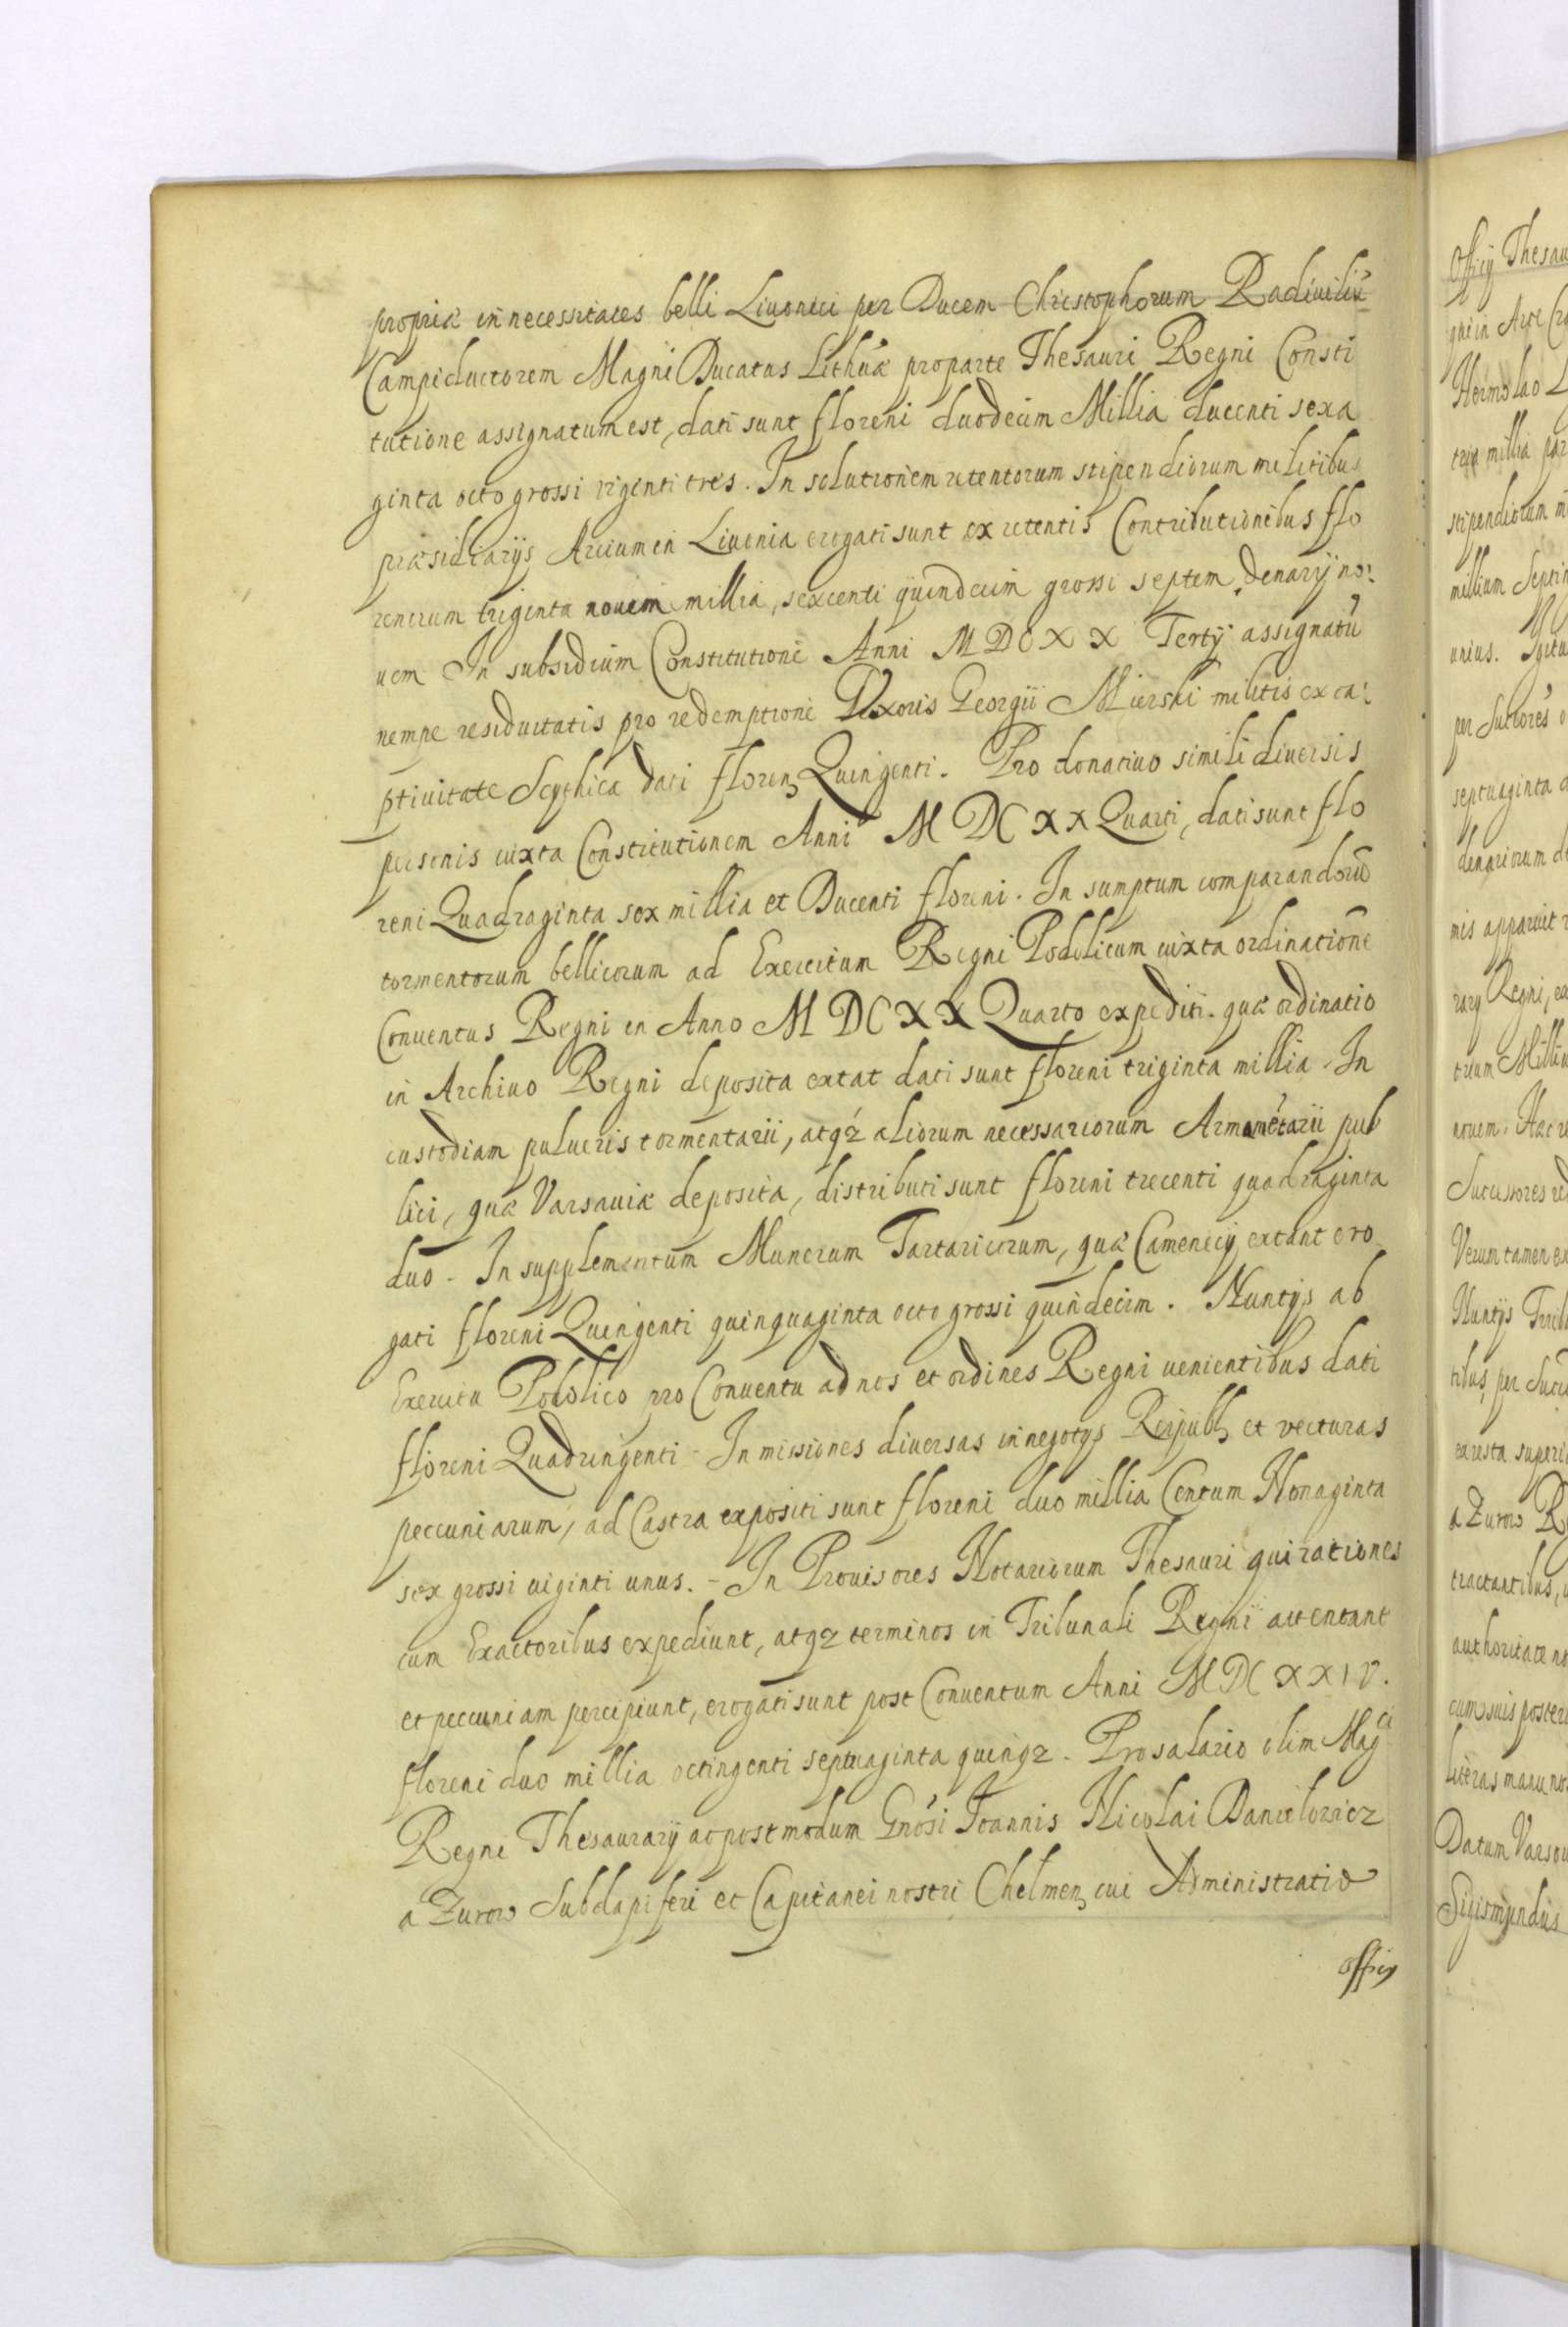 propriæ in necessitates belli Liuonici per Ducem Christophorum Radiuiliū
Campiductorem Magni Ducatus Lithuæ pro parte Thesauri Regni Consti
tutione assignatum est, dati sunt floreni duodecim Millia ducenti sexa
ginta octo grossi viginti tres. In solutionem retentorum stipendiorum militibus
præsidiarijs Arcium in Liuonia erogati sunt ex retentis Contributionibus flo
renorum triginta nouem millia, sexcenti quindecim grossi septem, denarij no:
uem In subsidium Constitutione Anni MDCXX Tertij assignatū
nempe residuitatis pro redemptione Uxoris Georgii Mierski militis ex ca:
ptiuitate Scythica dati floren Quingenti. Pro donatiuo simili diuersis
personis iuxta Constitutionem Anni MDCXX Quarti, dati sunt flo
reni Quadraginta sex millia et Ducenti floreni. In sumptum comparandorū
tormentorum bellicorum ad Exercitum Regni Podolicum iuxta ordinationē
Conuentus Regni in Anno MDCXX Quarto expediti. quæ ordinatio
in Archiuo Regni deposita extat dati sunt floreni triginta millia. In
custodiam pulueris tormentarii, atqz aliorum necessariorum Armamētarii pub
lici, quæ Varsauiæ deposita, distributi sunt floreni trecenti quadraginta
duo. In supplementum Munerum Tartaricorum, quæ Camenecij extant ero
gati floreni Quingenti quinquaginta octo grossi quindecim. Nuntijs ab
Exercitu Podolico pro Conuentu ad nos et ordines Regni uenientibus dati
floreni Quadringenti - In missiones diuersas in negotijs Reipubl et vecturas
peccuniarum, ad Castra expositi sunt floreni duo millia Centum Nonaginta
sex grossi uiginti unus. - In Prouisores Notariorum Thesauri qui rationes
cum Exactoribus expediunt, atqz terminos in Tribunali Regni attentant
et peccuniam percipiunt, erogati sunt post Conuentum Anni MDCXXIV.
floreni duo millia octingenti septuaginta quinqz. Pro salario olim Magci
Regni Thesaurarij ac postmodum Gnosi Joannis Nicolai Danielowicz
a Zurow Subdapiferi et Capitanei nostri Chelmen cui Administratio
officij
Officij Thesau
qui in Arce
Hermolao
tria millia
stipendiorum m
millium Septin
unius.
septuaginta
denariorum
mis apparuit
rarij Regni,
trium Milliu
nouem.
Successores
Verum tamen
Nuntijs
tibus, per
ex ista superi
a Zurow
tractantibus,
authoritate no
cum suis poster
literas manu
Datum Varsou
Sigismundus